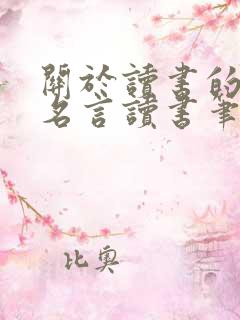 關於讀書的
名言讀書筆
比奧